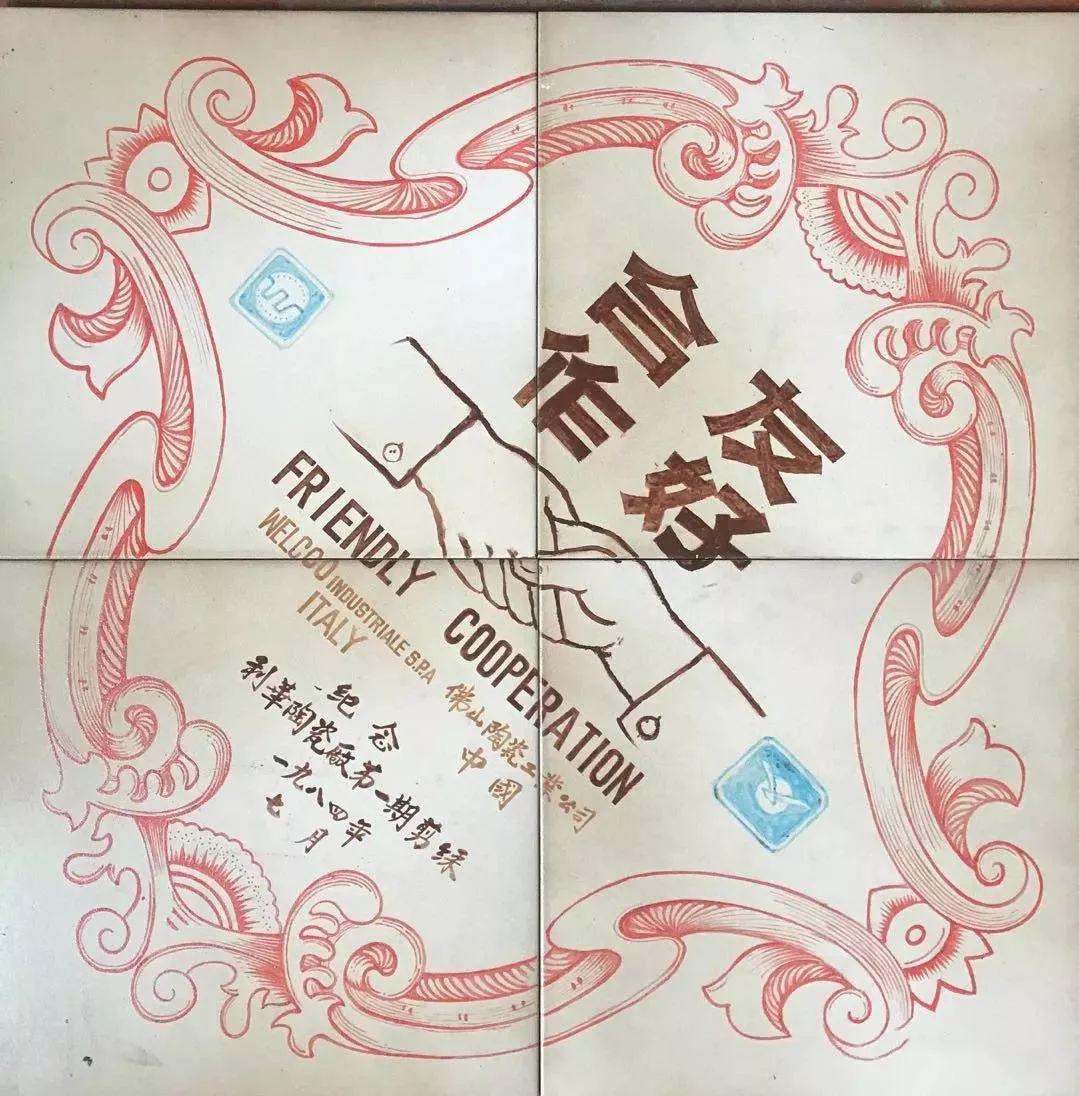 友好
合作
FRIENDLY COOPERATION
WELCGO INDUSTRIALE S.P.A
ITALY
佛山陶瓷工業公司
中國
纪念
利華陶瓷厰第一期剪綵
一九八四年
七月